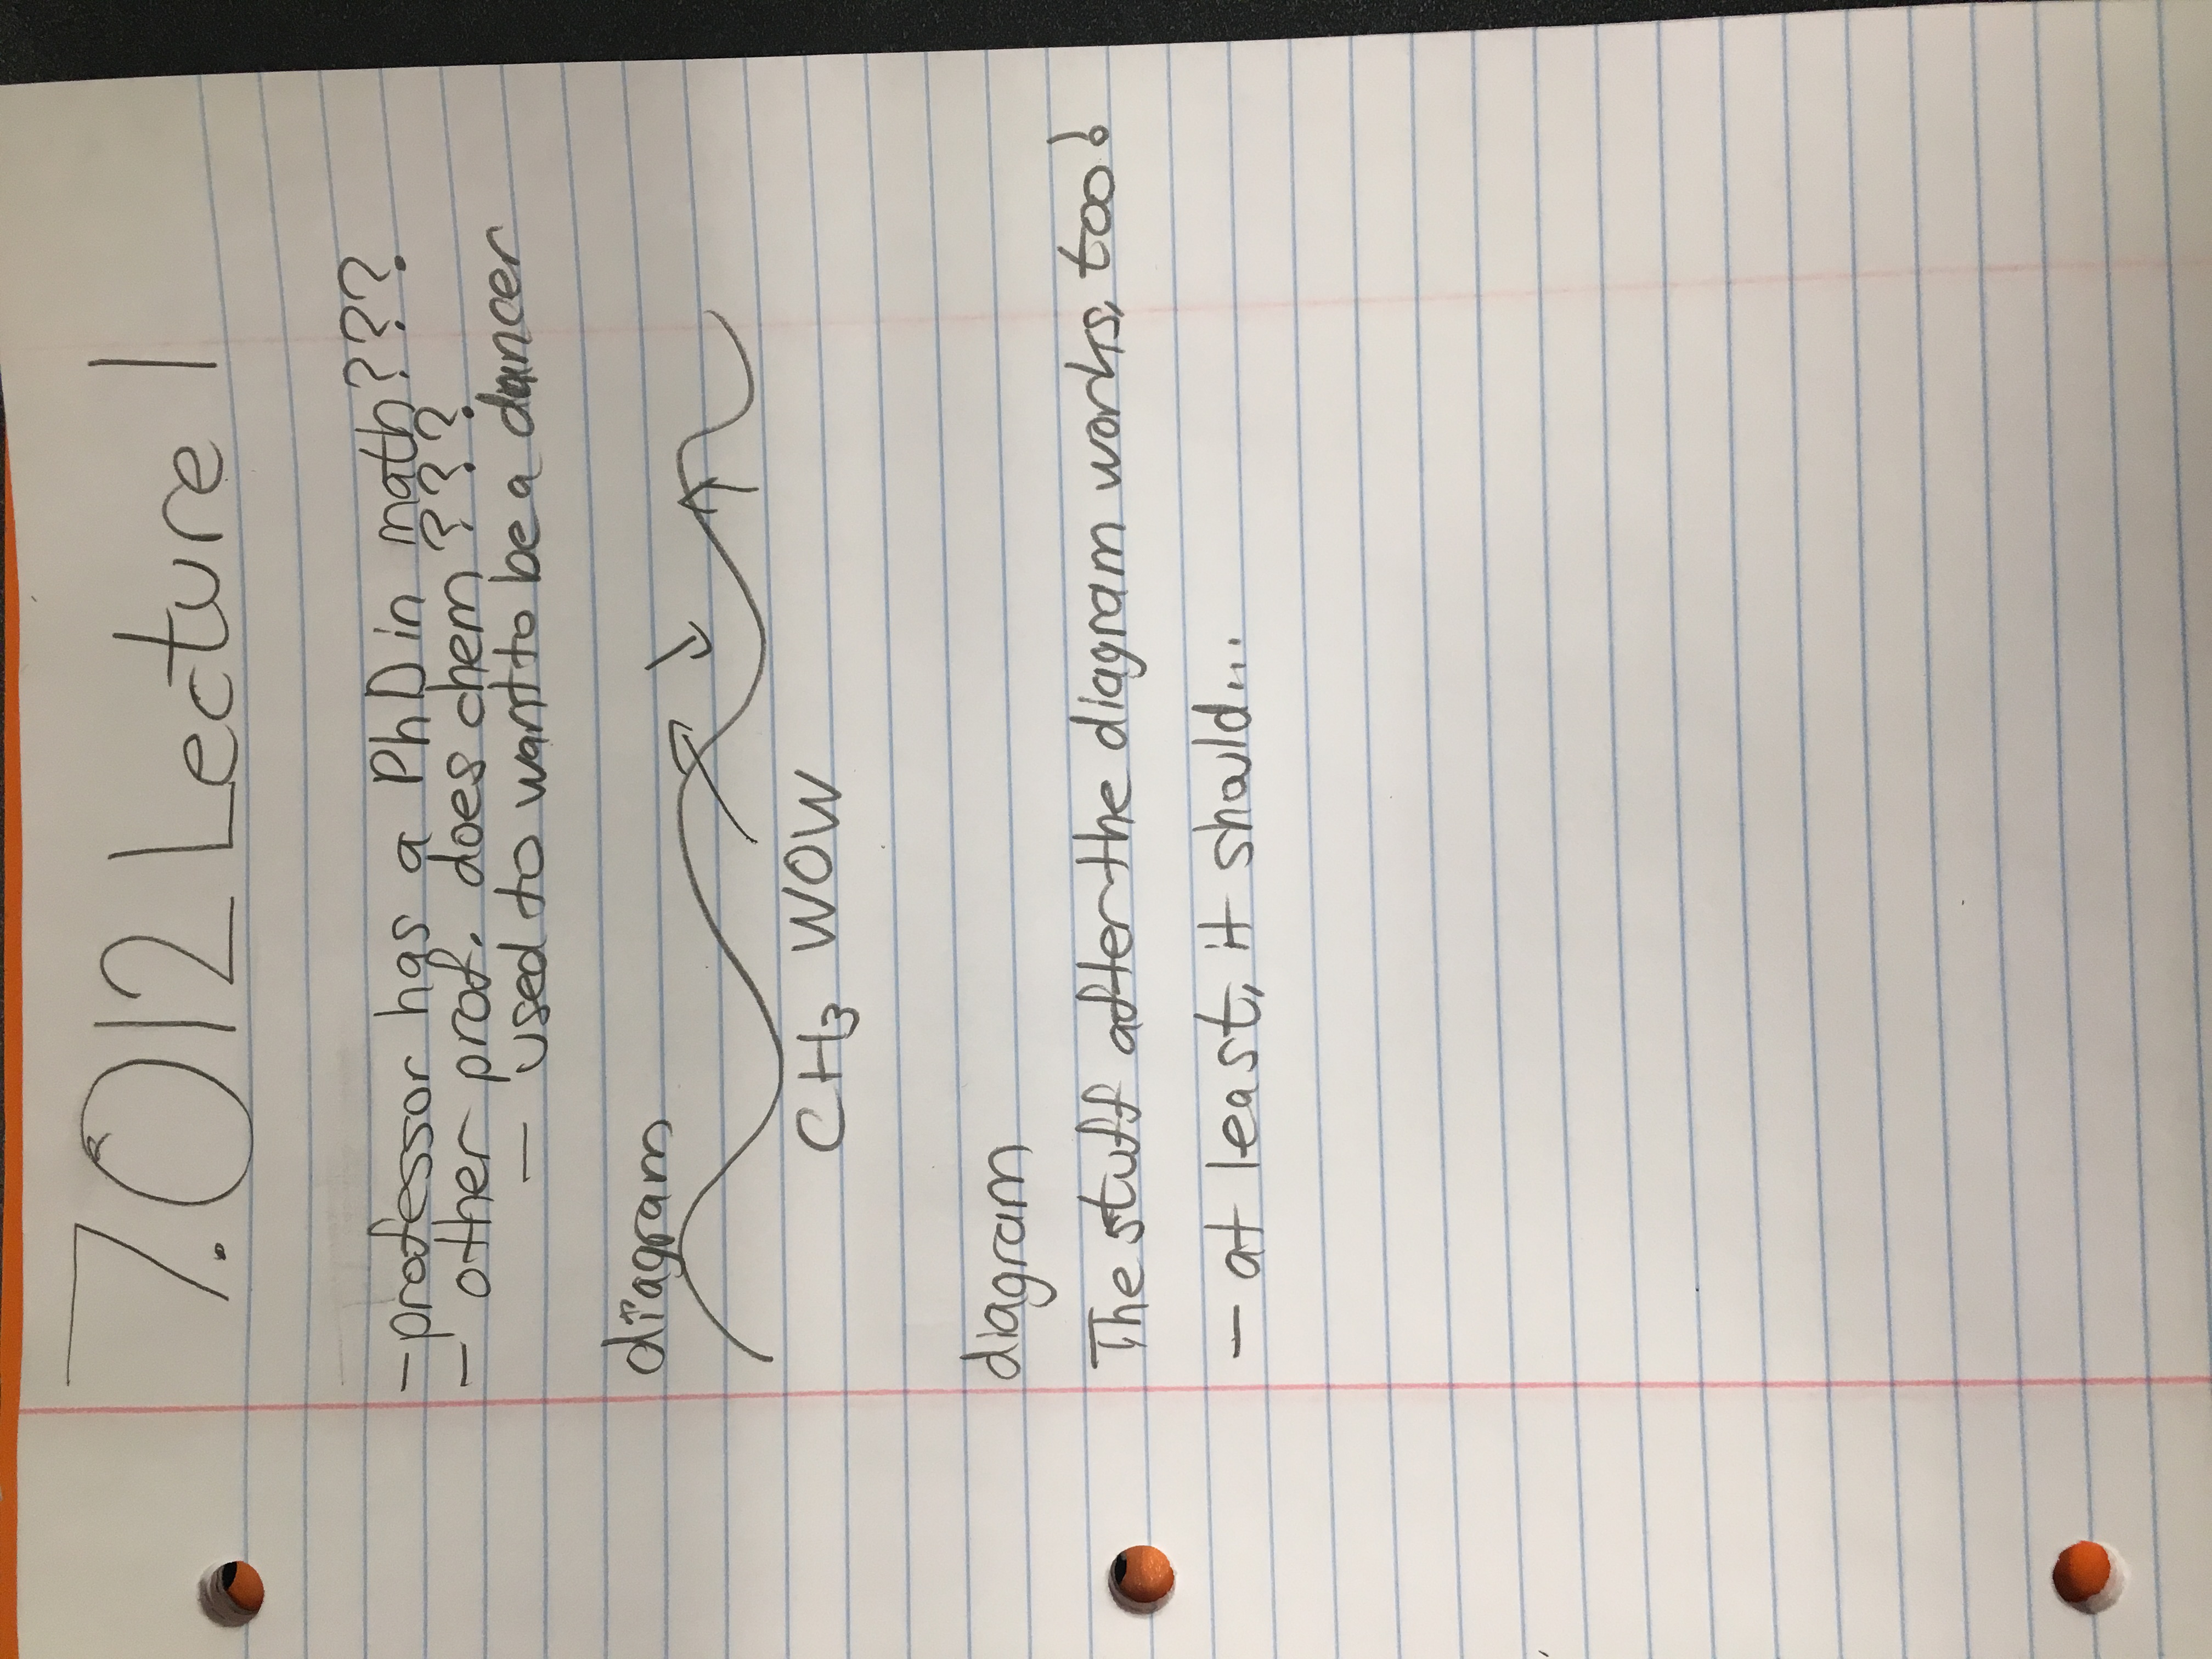 7.012 Lecture 1
- professor has a PhD in math???
- other prof. does chem???
- used to want to be a dancer
diagram
CH₃ WOW
diagram
The stuff after the diagram works, too!
- at least, it should...